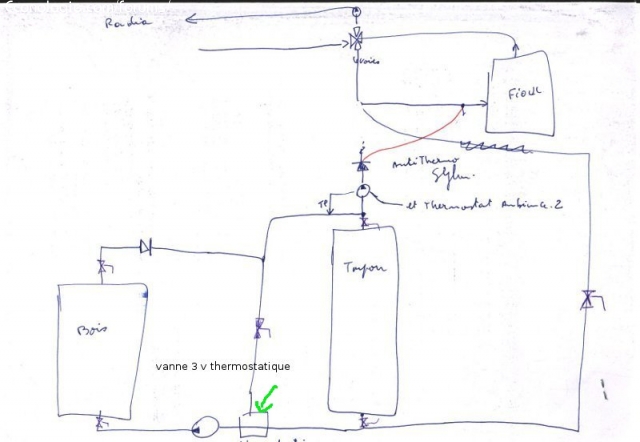 Radia
4 voies
Fioul
Anti Thermo
et Thermostat Ambiance. 2
TP
Tampon
Bois
vanne 3 v thermostatique